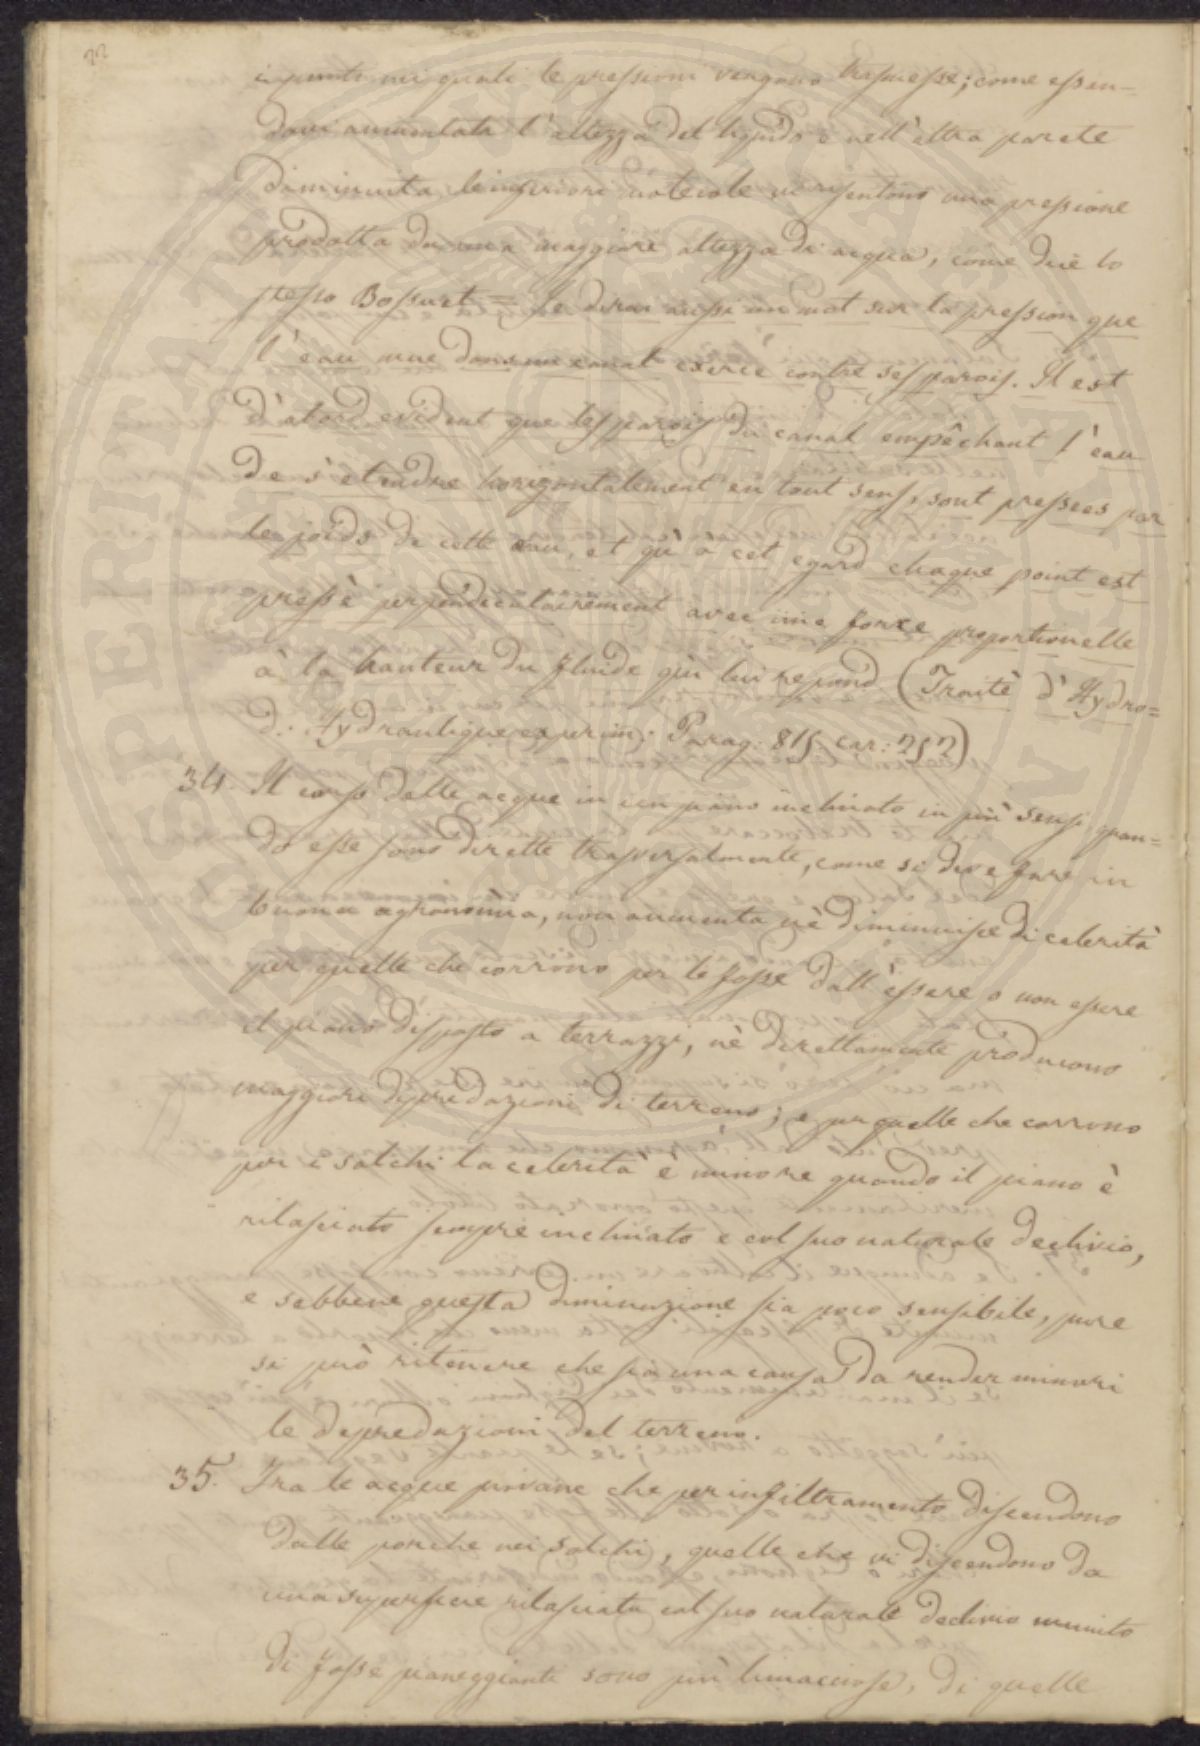 22
i punti nei quali le pressioni vengono trasmesse; come essen=
dovi aumentata l'altezza del liquido e nell'altra parete
diminuita, le inferiori molecole vi risentono una pressione
prodotta da una maggiore altezza di acqua, come dice lo
stesso Bossuet = Je dirai aussi un mot sur la pression que
l'eau mue dans un canal exerce contre ses parois. Il est
d'abord evident que les parois du canal empêchant l'eau
de s'etendre horizontalement en tout sens, sont pressees par
le poids de cette eau, et qu'à cet egard chaque point est
pressè perpendiculairement avec une force proportionelle
à la hauteur du fluide qui lui repond (Traitè d'Hydro=
d: Hydraulique experim: Parag: 815. car: 252)
34. Il corso delle acque in un piano inclinato in più sensi, quan=
do esse sono dirette trasversalmente, come si deve fare in
buona agronomia, non aumenta nè diminuisce di celerità
per quelle che corrono per le fosse dall'essere o non essere
il piano disposto a terrazzi, nè direttamente producono
maggiori depredazioni di terreno; e per quelle che corrono
per i solchi la celerità è minore quando il piano è
rilasciato sempre inclinato e col suo naturale declivio,
e sebbene questa diminuzione sia poco sensibile, pure
si può ritenere che sia una causa da render minori
le depredazioni del terreno.
35. Tra le acque piovane che per infiltramento discendono
dalle porche nei solchi, quelle che vi discendono da
una superficie rilasciata col suo naturale declivio munito
di fosse pianeggianti sono più limacciose, di quelle
SPERITATE PUBLICAE